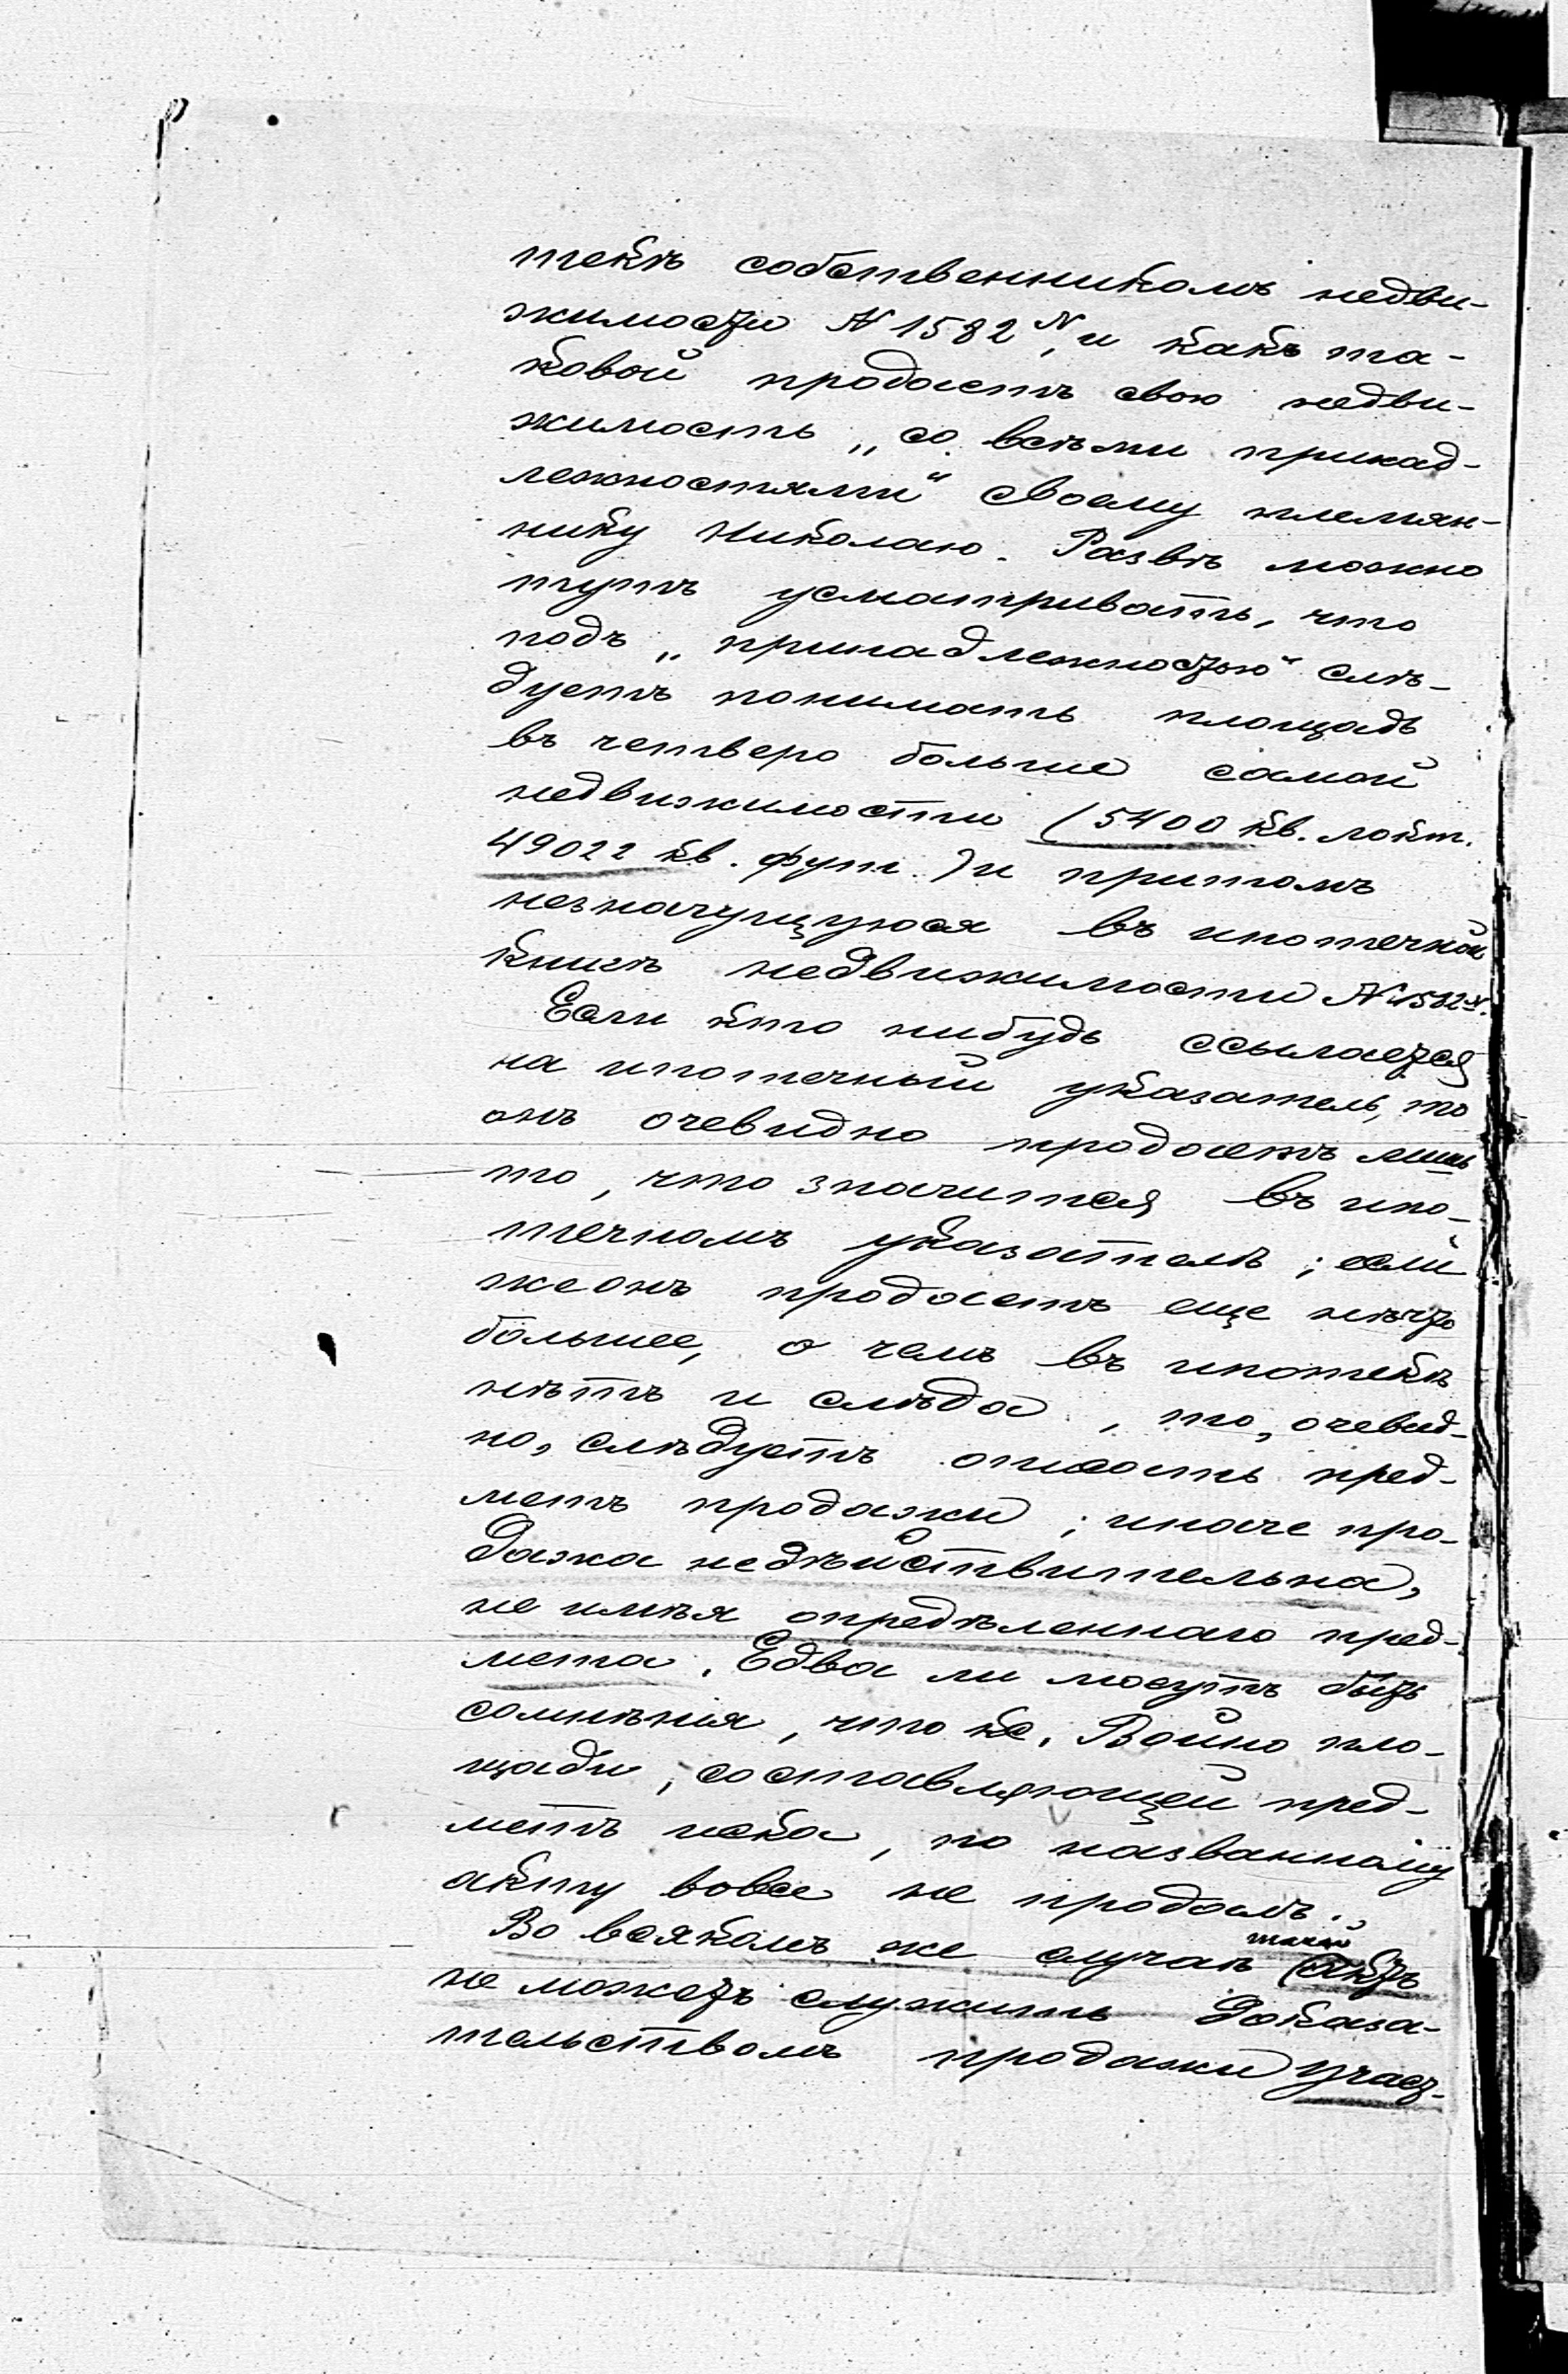 текѣ собственникомъ недви-
жимости N 1582 N, и какъ та-
ковой продаетъ свою недви-
жимость „со всѣми принад-
лежностями“ своему племян-
нику Николаю. Развѣ можно
тутъ усматривать, что
подъ „принадлежностью“ слѣ-
дуетъ понимать площадь
въ четверо больше самой
недвижимости (5400 кв. локт.
49022 кв. фут.) и притомъ
незначущуюся въ ипотечной
книгѣ недвижимости N 1582 N.
Если кто нибудь ссылается
на ипотечный указатель, то
онъ очевидно продаетъ лишь
то, что значится въ ипо-
течномъ указателѣ; если
же онъ продаетъ еще нѣчто
большее, о чемъ въ ипотекѣ
нѣтъ и слѣда, то, очевид-
но, слѣдуетъ описать пред-
метъ продажи; иначе про-
дажа недѣйствительна,
не имѣя опредѣленнаго пред-
мета. Едва ли могутъ быть
сомнѣнія, что кс. Войно пло-
щади, составляющей пред-
метъ иска, по названному
акту вовсе не продалъ.
Во всякомъ же случаѣ такой актъ
не можетъ служить доказа-
тельствомъ продажи участ-